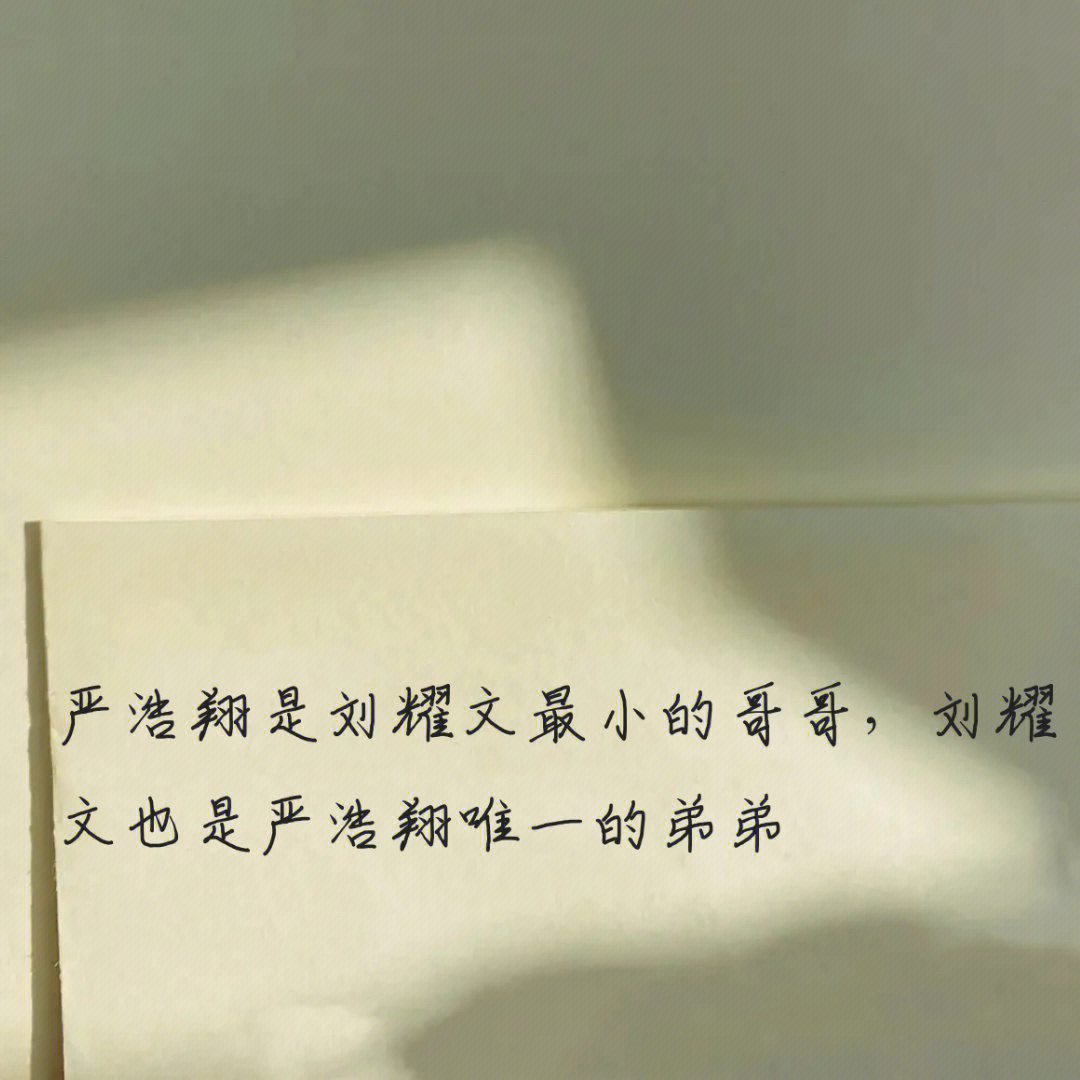 严浩翔是刘耀文最小的哥哥，刘耀
文也是严浩翔唯一的弟弟